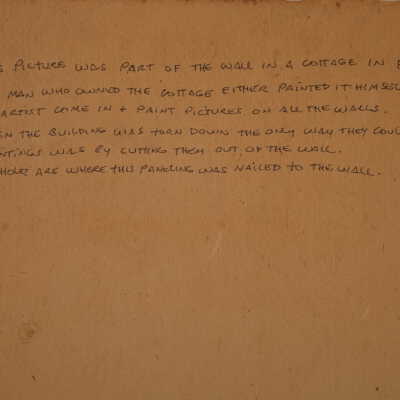 S PICTURE WAS PART OF THE WALL IN A COTTAGE IN
MAN WHO OWNED THE COTTAGE EITHER PAINTED IT HIMSEL
ARTIST COME IN + PAINT PICTURES ON ALL THE WALLS.
EN THE BUILDING WAS TORN DOWN THE ONLY WAY THEY COUL
NTINGS WAS BY CUTTING THEM OUT OF THE WALL.
HOLES ARE WHERE THIS PANELING WAS NAILED TO THE WALL.